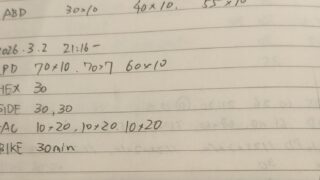 ABD 30×10 40×10. 55×10
2026.3.2 21:16-
PD 70×10 .70×7 60×10
HEX 30
SIDE 30, 30
AC 10×20, 10×20 10×20
BIKE 30min